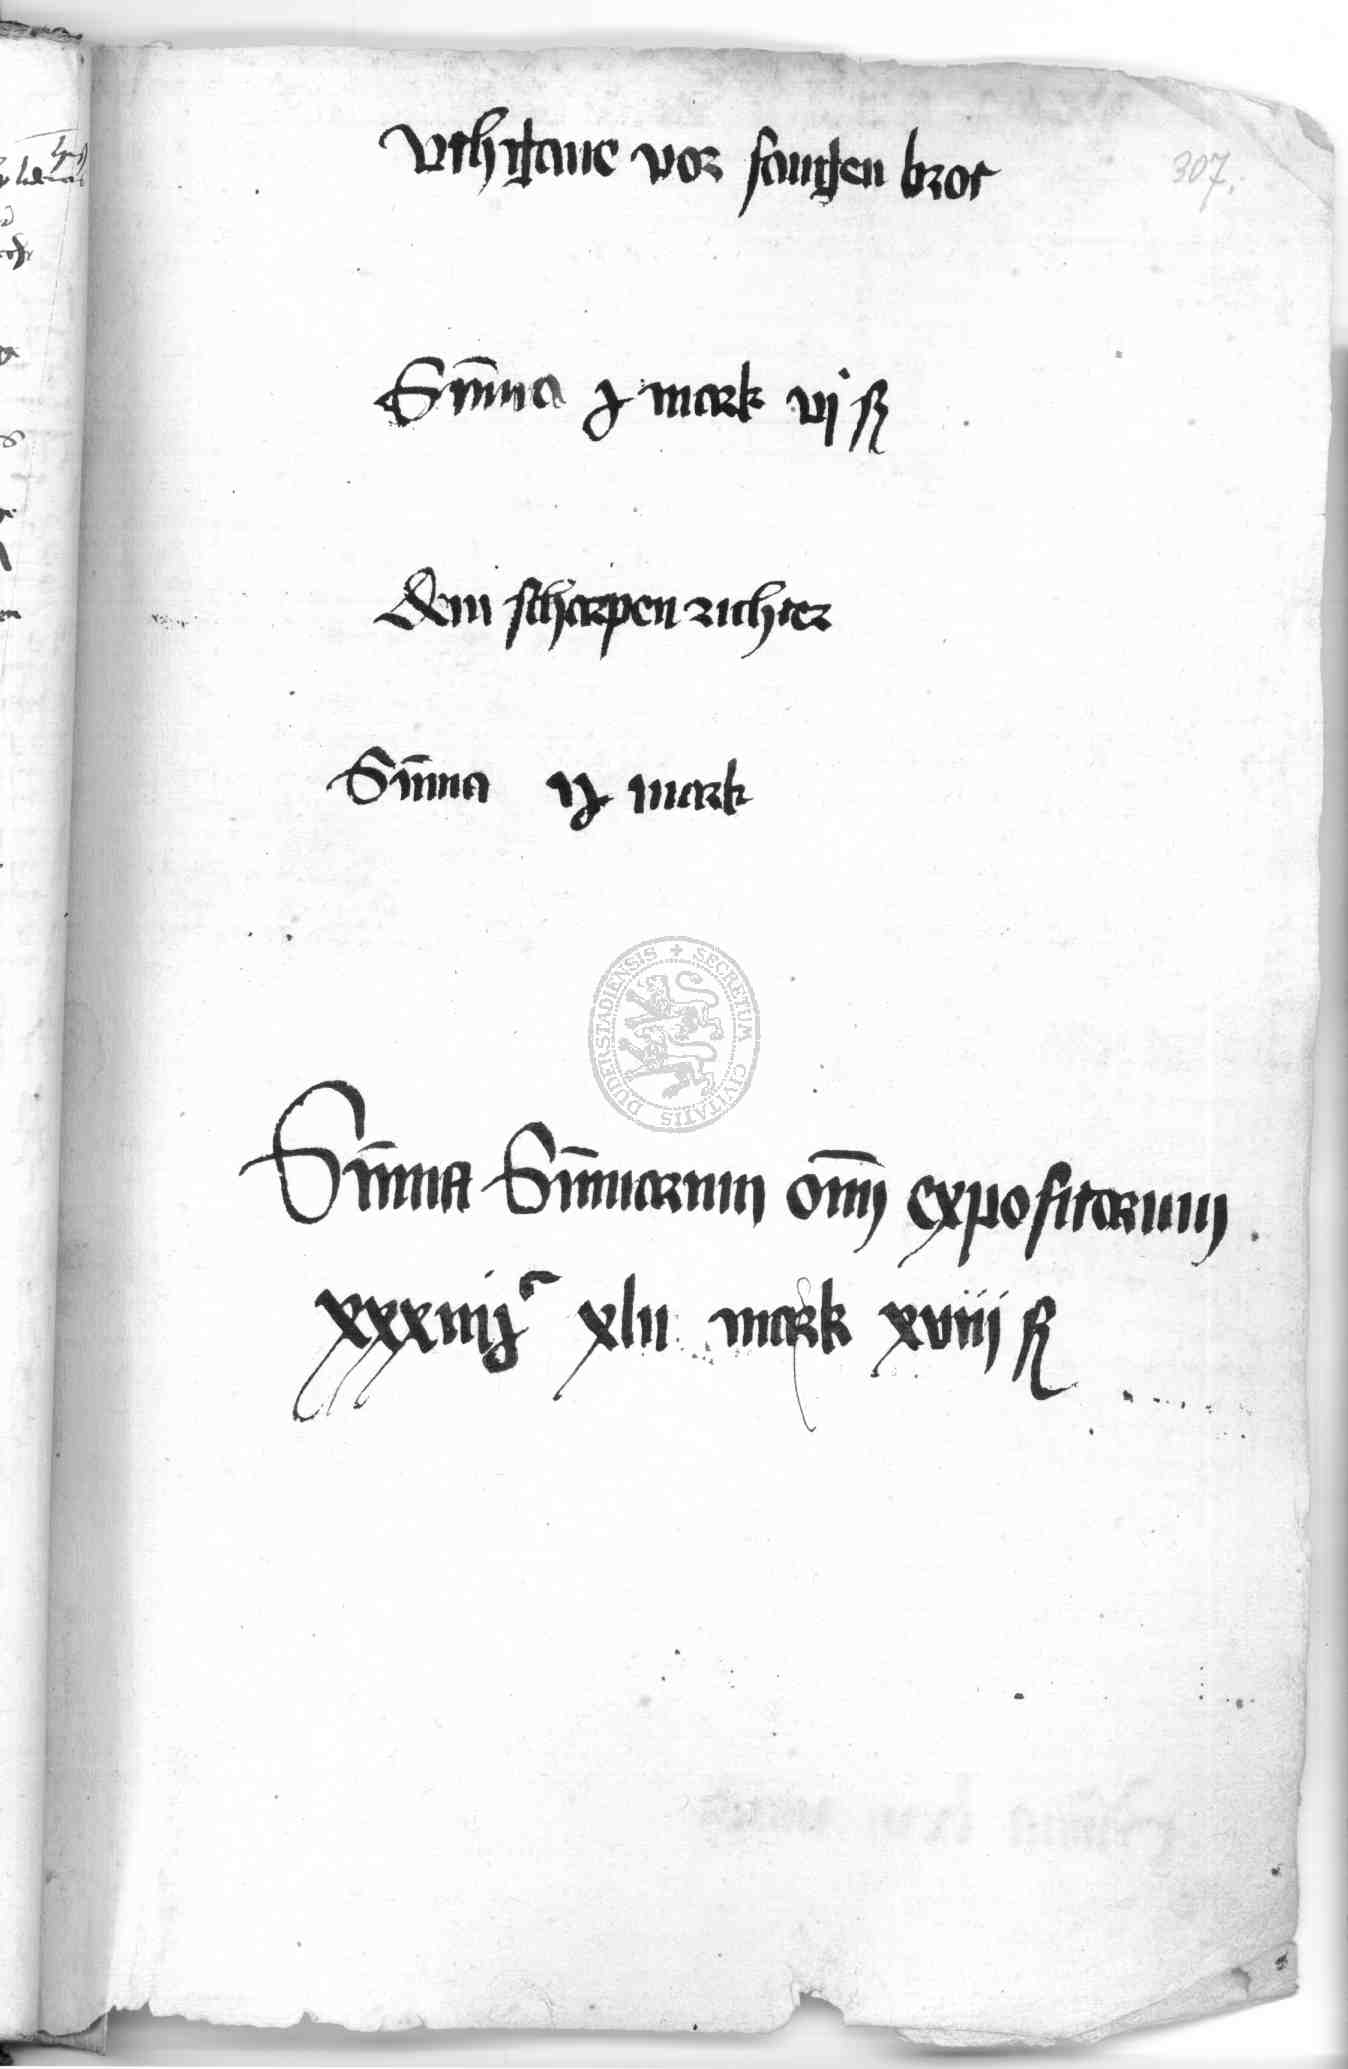 Uthgaue vor fangen brot
307.
Sum̄a j mark vj ß
Dem scharpen richter
Sum̄a ij mark
SECRETUM CIVITATIS DUDERSTADIENSIS
Sum̄a Sum̄arum om̄ expositorum
xxxiiijᶜ xlii mark xviii ß